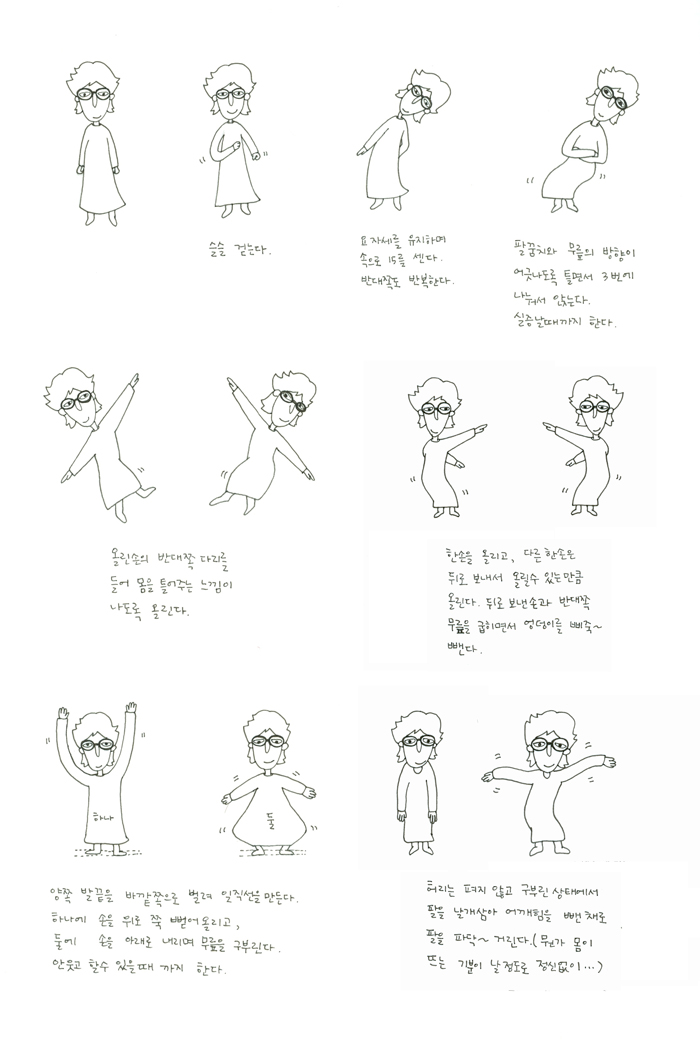 슬슬 걷는다.
요 자세를 유지하며
속으로 15를 센다.
반대쪽도 반복한다.
팔꿈치와 무릎의 방향이
어긋나도록 틀면서 3번에
나눠서 앉는다.
실증날때까지 한다.
올린손의 반대쪽 다리를
들어 몸을 틀어주는 느낌이
나도록 올린다.
한손을 올리고, 다른 한손은
뒤로 보내서 올릴수 있는만큼
올린다. 뒤로 보낸손과 반대쪽
무릎을 굽히면서 엉덩이를 삐죽~
뺀다.
하나
둘
양쪽 발끝을 바깥쪽으로 벌려 일직선을 만든다.
하나에 손을 위로 쭉 뻗어 올리고,
둘에 손을 아래로 내리며 무릎을 구부린다.
안웃고 할수 있을때 까지 한다.
허리는 펴지 않고 구부린 상태에서
팔을 날개삼아 어깨힘을 뺀 채로
팔을 파닥~ 거린다.(뭔가 몸이
뜨는 기분이 날 정도로 정신없이…)